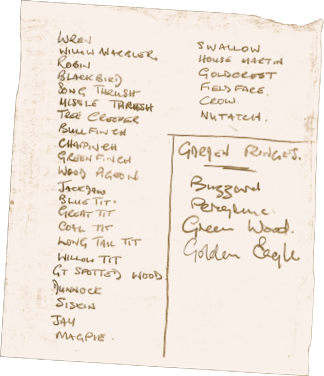 WREN
WILLOW WARBLER
ROBIN
BLACKBIRD
SONG THRUSH
MISSLE THRUSH
TREE CREEPER
BULLFINCH
CHAFFINCH
GREENFINCH
WOOD PIGEON
JACKDAW
BLUE TIT.
GREAT TIT
COAL TIT
LONG TAIL TIT
WILLOW TIT
GT SPOTTED WOOD.
DUNNOCK
SISKIN
JAY
MAGPIE.
SWALLOW
HOUSE MARTIN
GOLDCREST
FIELDFARE.
CROW.
NUTATCH.
GARDEN FRINGES.
Buzzard
Peregrine.
Green Wood.
Golden Eagle